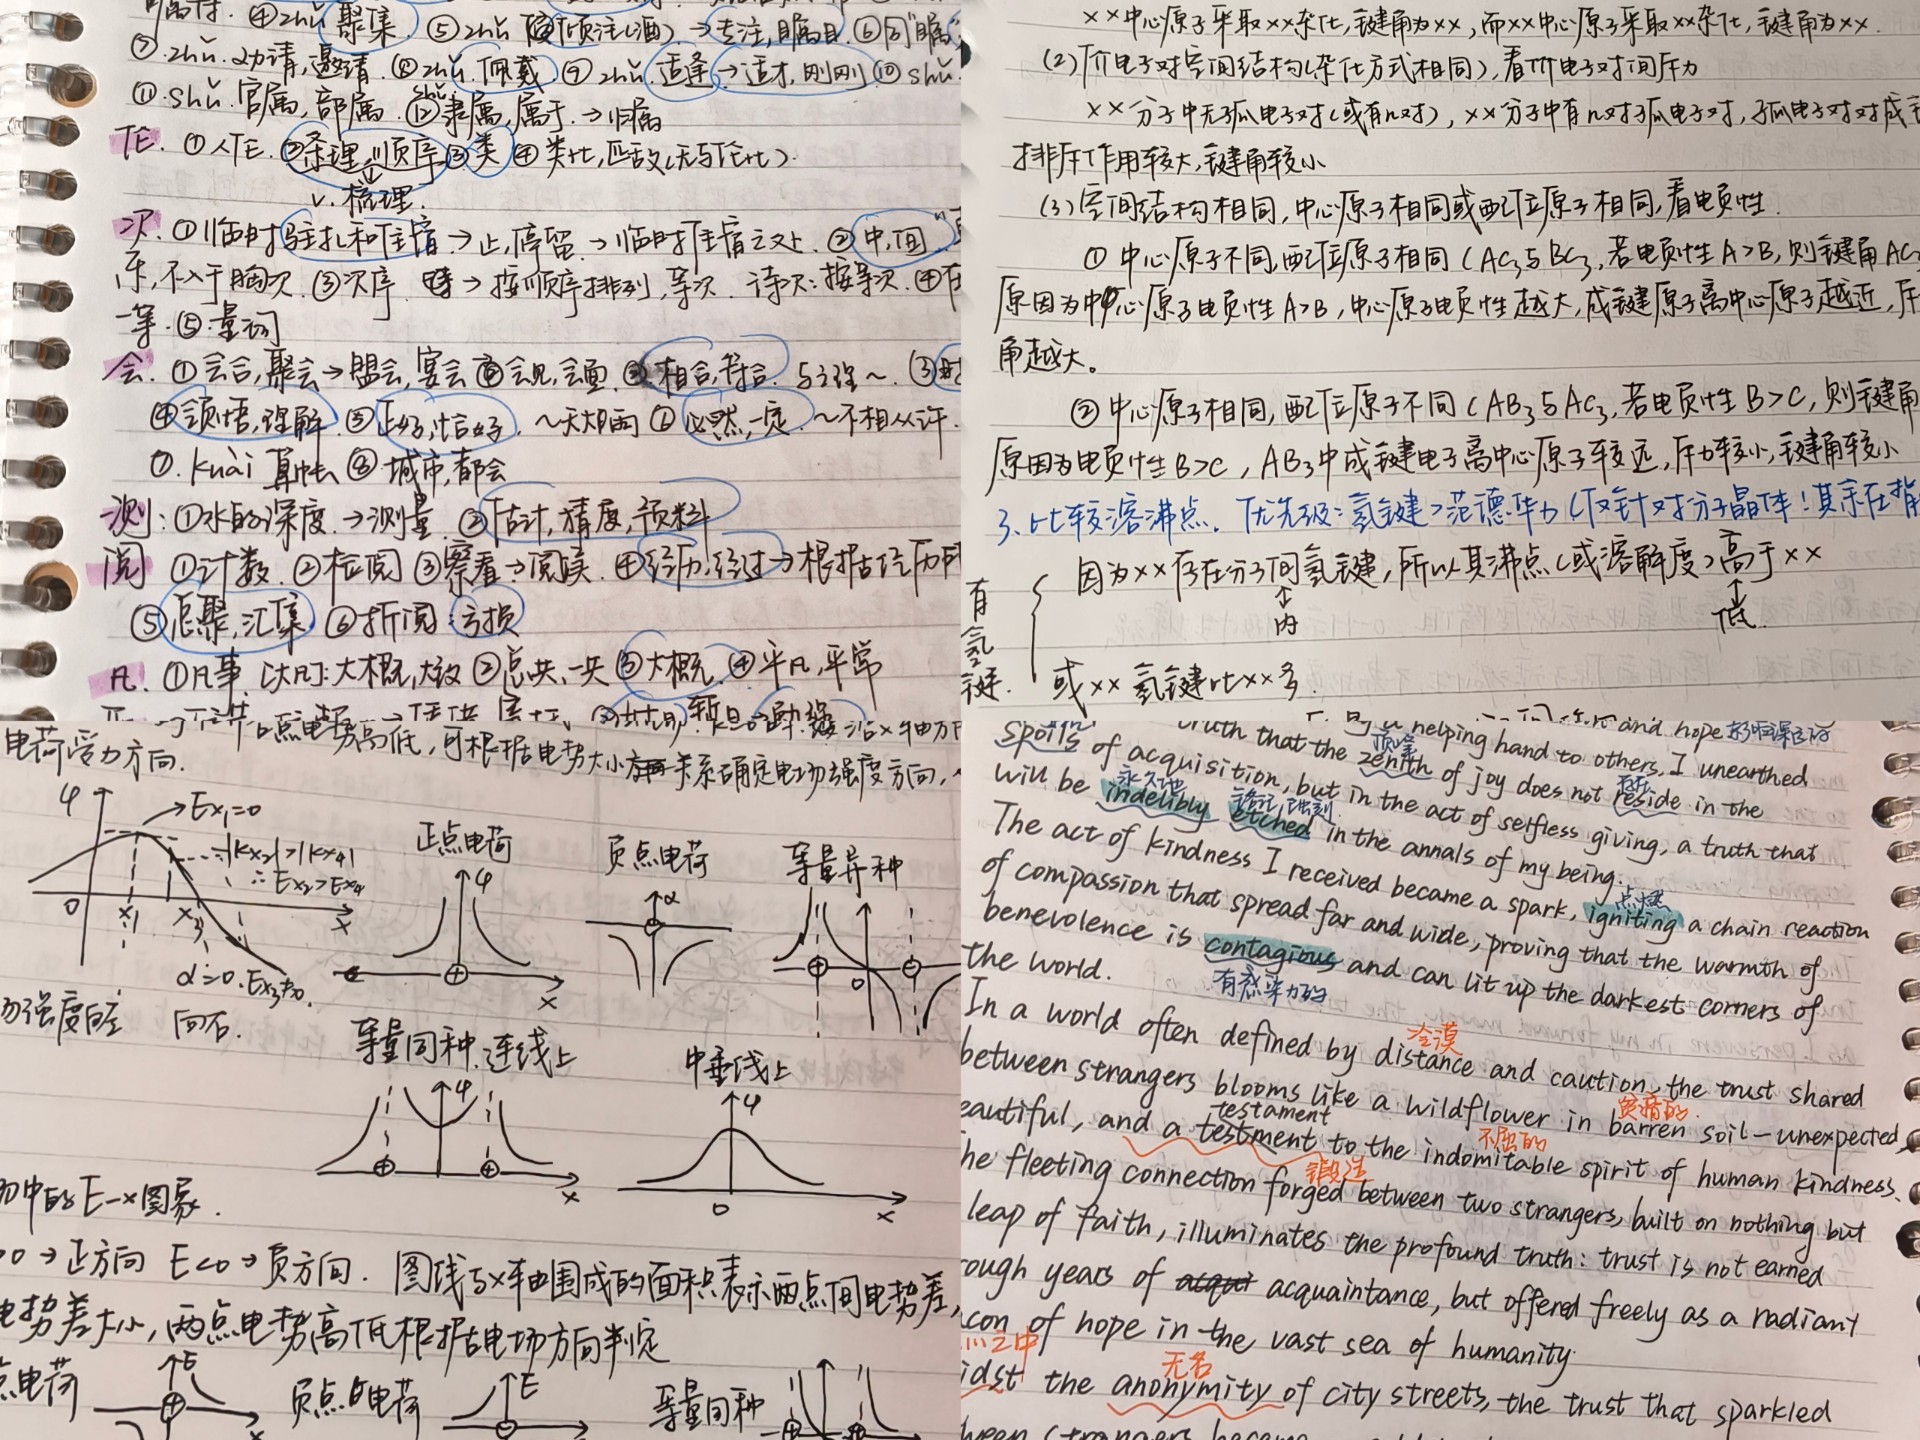 ④zhǔ 聚集 ⑤zhǔ 倾注(酒)→专注,瞩目.⑥同"瞩
⑦.zhǔ.劝请,邀请.⑧zhǔ.佩戴 ⑨zhǔ.适逢→适才,刚刚 ⑩shǔ.
⑪.shǔ.官属,部属.⑫shǔ.隶属,属于.→归属
伦.①人伦.②条理,顺序 ③类 ④类比,匹敌(无与伦比).
v.梳理.
次.①临时驻扎和住宿→止,停留.→临时住宿之处.②中,间."
乐,不入于胸次.③次序.→按顺序排列,等次.诗次:按等次.④
一等.⑤量词
会.①会合,聚会→盟会,宴会 会见,会面.相合,符合.与~.③
④领悟,理解.⑤正好,恰好.~天大雨 ⑥必然,一定.~不相从许.
⑦.kuài 算帐.⑧城市,都会
测:①水的深度.→测量.②估计,猜度,预料
阅 ①计数.②检阅 ③察看→阅读.④经历,经过→根据经历
⑤总聚,汇集 ⑥折阅:亏损
凡.①凡事.[大凡]:大概,大致 ②总共,一共 ③大概.④平凡,平常
××中心原子采取××杂化,键角为××,而××中心原子采取××杂化,键角为××.
(2)价电子对空间结构(杂化方式相同),看价电子对间斥力
××分子中无孤电子对(或有n对),××分子中有n对孤电子对,孤电子对对成
排斥作用较大,键角较小
(3)空间结构相同,中心原子相同或配位原子相同,看电负性.
①中心原子不同,配位原子相同(AC₃与BC₃,若电负性A>B,则键角AC₃
原因为中心原子电负性A>B,中心原子电负性越大,成键原子离中心原子越近,斥
角越大。
②中心原子相同,配位原子不同(AB₃与AC₃,若电负性B>C,则键角
原因为电负性B>C,AB₃中成键电子离中心原子较远,斥力较小,键角较小
3.比较溶沸点.优先级:氢键>范德华力(仅针对分子晶体!其余在指
因为××存在分子间氢键,所以其沸点(或溶解度)高于××
内
低.
有氢键.
或××氢键比××多.
点电势高低,可根据电势大小关系确定电场强度方向,
电荷受力方向.
φ
Ex₁=0
|kx₂|>|kx₄|
∴Ex₂>Ex₄
0 x₁ x₃ x
α=0.Ex₃≠0.
场强度的 向右.
正点电荷
φ
x
负点电荷
等量异种
0
等量同种.连线上
φ
x
中垂线上
φ
0
x
场中的E—x图象.
>0→正方向 E<0→负方向.图线与x轴围成的面积表示两点间电势差,
电势差大小,两点电势高低根据电场方向判定
点电荷
E
x
负点电荷
E
等量同种
helping hand to others, I unearthed
and hope 影响深远的
spoils of acquisition, but in the act of selfless giving, a truth that
truth that the zenith of joy does not reside in the
顶峰
存在
will be indelibly etched in the annals of my being.
永久地
铭记,蚀刻
The act of kindness I received became a spark, igniting a chain reaction
点燃
of compassion that spread far and wide, proving that the warmth of
benevolence is contagious and can lit up the darkest corners of
有感染力的
the world.
In a world often defined by distance and caution, the trust shared
冷漠
between strangers blooms like a wildflower in barren soil—unexpected,
贫瘠的.
eautiful, and a testment to the indomitable spirit of human kindness.
testament
不屈的
he fleeting connection forged between two strangers, built on nothing but
锻造
leap of faith, illuminates the profound truth: trust is not earned
rough years of acquaintance, but offered freely as a radiant
acon of hope in the vast sea of humanity.
之中
idst the anonymity of city streets, the trust that sparkled
无名